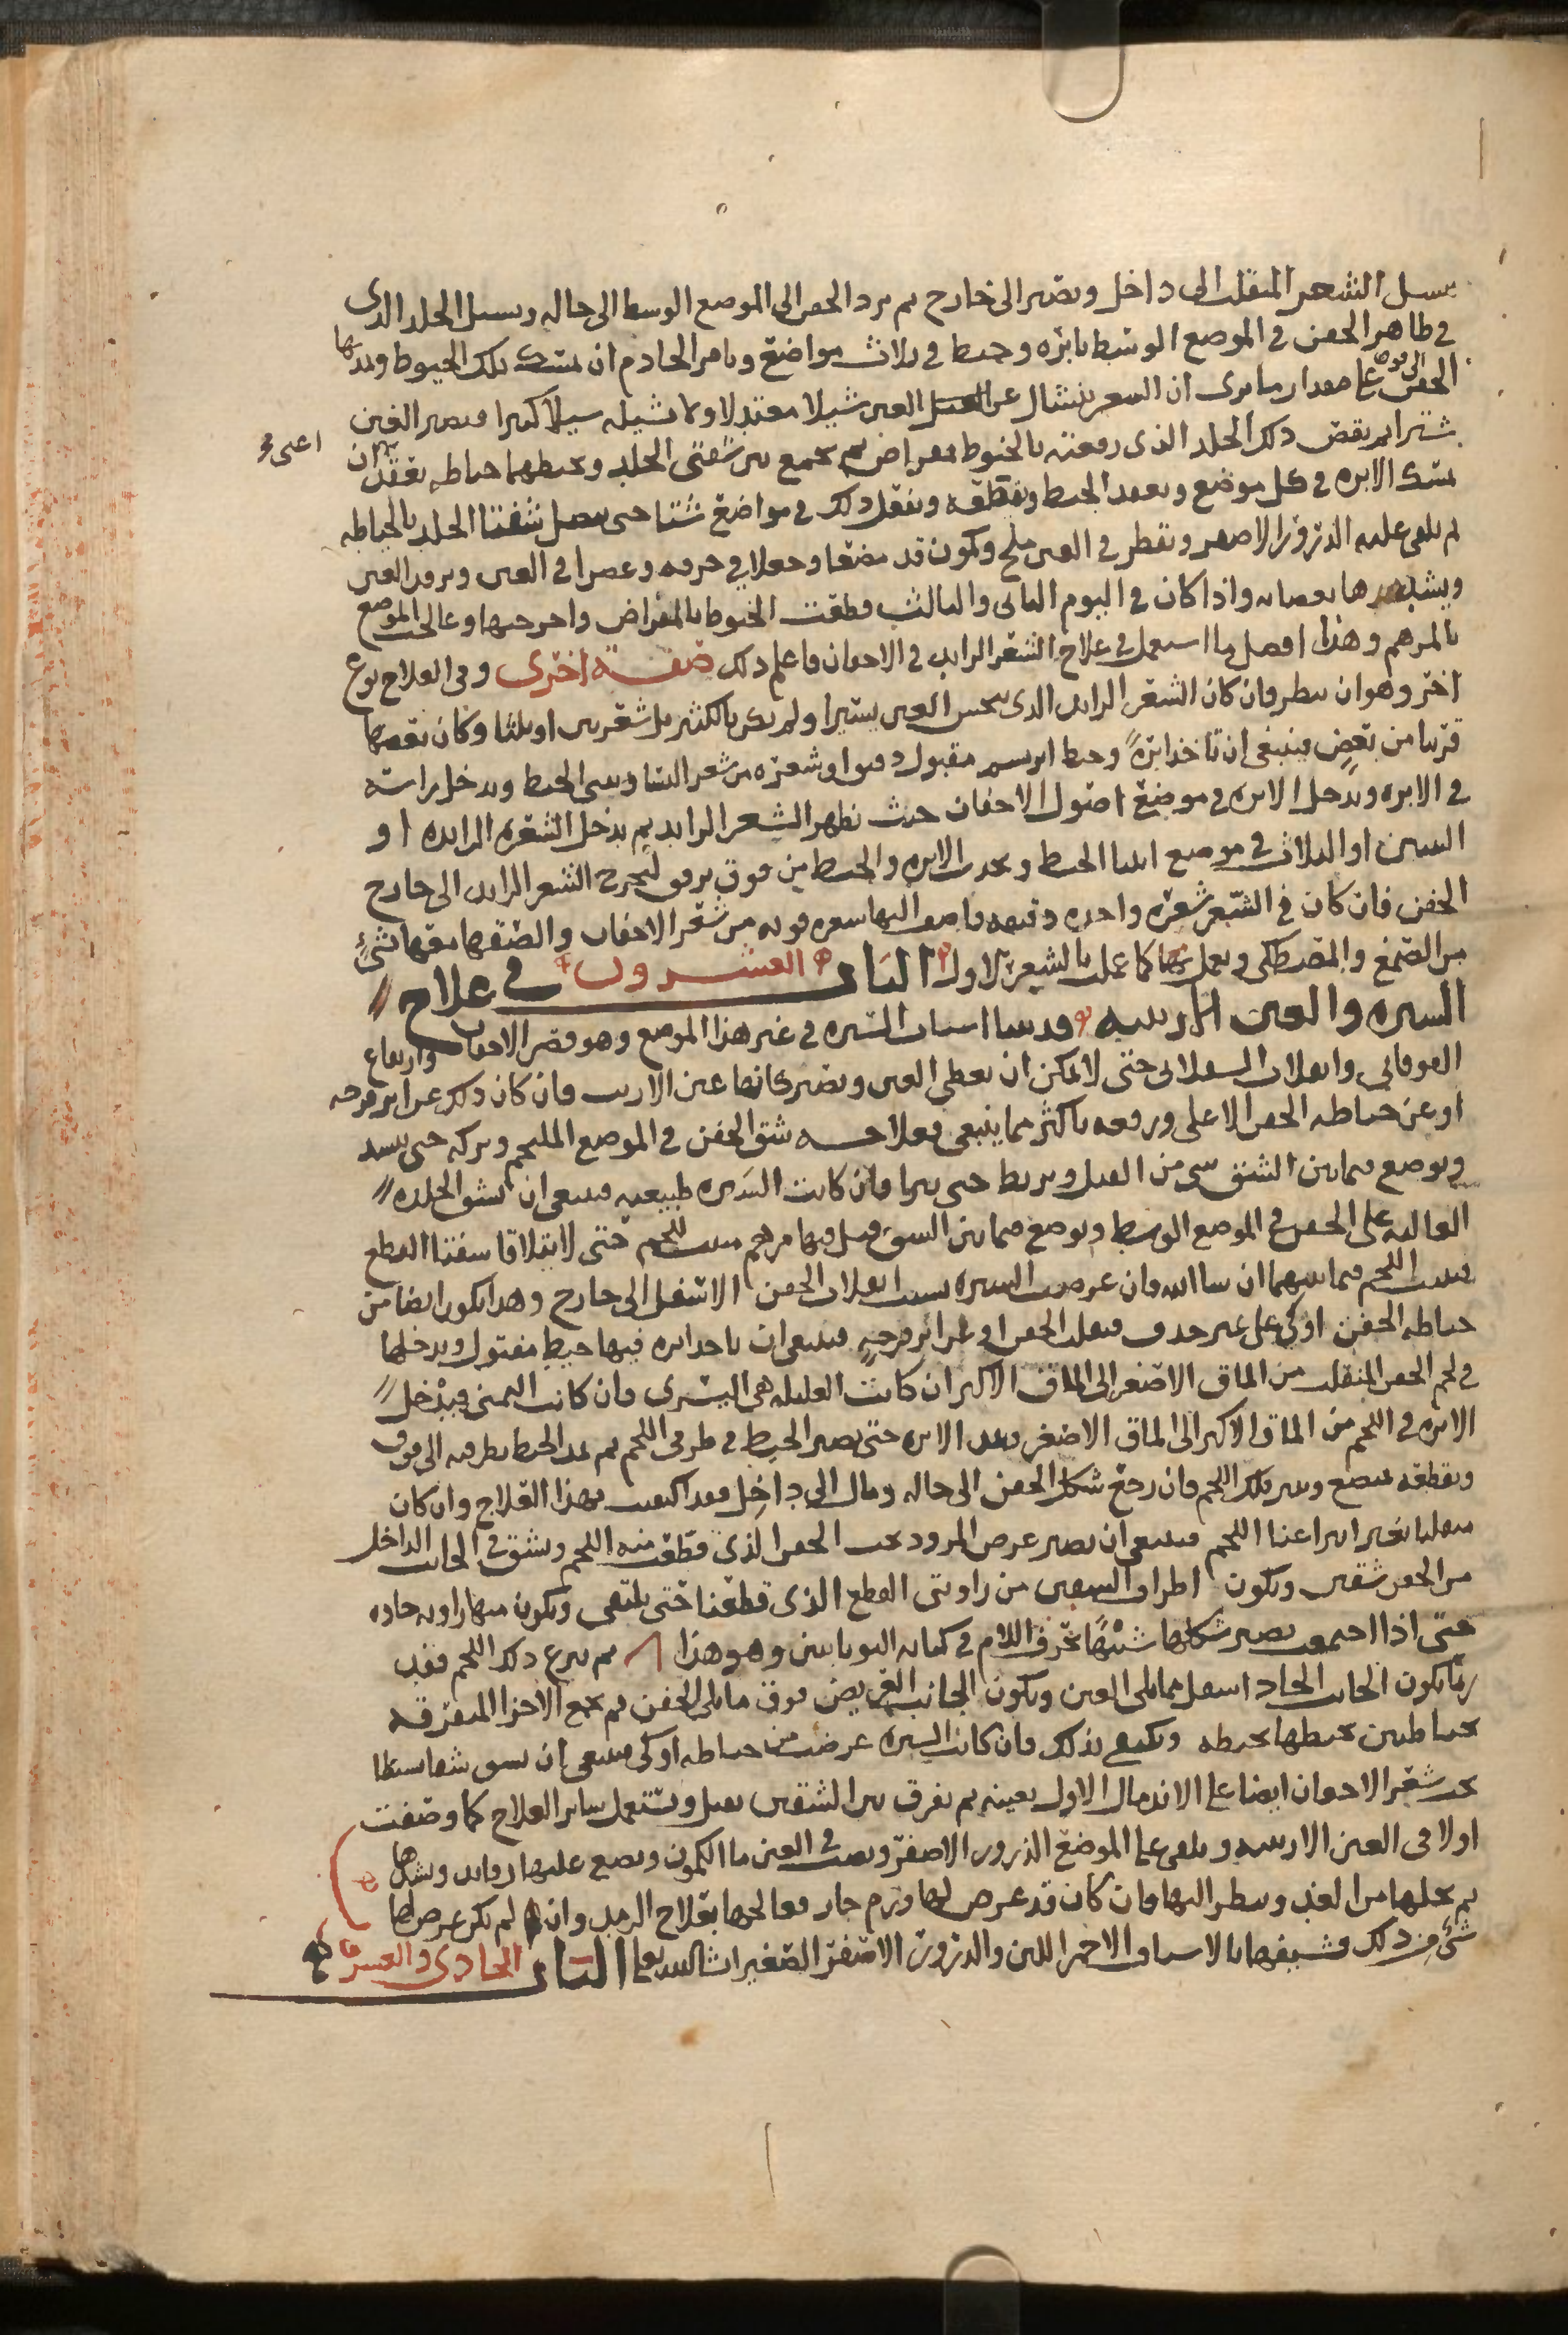 يسيل الشعر المنقلب الى داخل ويصير الى خارج ثم يرد الجفن الى الموضع الوسط الى حاله ويسيل الجلد الذى
في ظاهر الجفن في الموضع الوسط بابره وخيط في ثلاث مواضع ويامر الخادم ان يمسك تلك الخيوط ويمدها
الجفن الى فوق على مقدار ما يرى ان الشعر ينشال عن العين شيلا معتدلا ولا تشيله شيلا كثيرا فيصير العين
شترا ثم يقص ذلك الجلد الذى رفعته بالخيوط بمقراض ثم يجمع بين شفتى الجلد ويخيطهما خياطه بعقد ان
اعنى
تشك الابره في كل موضع ويعقد الخيط ويقطعه ويفعل ذلك في مواضع شتا حتى يتصل شفتا الجلد بالخياطه
ثم يلقى عليه الذرور الاصفر ويقطر في العين ملح وكمون قد مضغا وجعلا في خرقه وعصرا في العين ويرفد العين
ويشد بعصابه واذا كان في اليوم الثانى والثالث قطعت الخيوط بالمقراض واخرجتها وعالجت الموضع
بالمرهم وهذا افضل ما استعمل في علاج الشعر الزايد في الاجفان فاعلم ذلك صفه اخرى وفي العلاج نوع
اخر وهو ان ينظر فان كان الشعر الزايد الذى ينخس العين يسيرا ولم يكن بالكثير بل شعرتين او ثلثا وكان بعضها
قريبا من بعض فينبغي ان تاخذ ابرة وخيط ابريسم مفتول دقيق او شعره من شعر النسا ويثنى الخيط ويدخل راسه
في الابره ويدخل الابره في موضع اصول الاجفان حيث يظهر الشعر الزايد ثم يدخل الشعره الزايده او
الثنتين او الثلاث في موضع انثنا الخيط ويجذب الابره والخيط من فوق برفق ليخرج الشعر الزايد الى خارج
الجفن فان كان في الشعر شعره واحده دقيقه فاضف اليها شعره قويه من شعر الاجفان والصقها معها بشئ
من الصمغ والمصطكى ويعمل بها كما عملت بالشعر الاول الباب العشرون في علاج
الشتره والعين الارنبيه وقد بينا اسباب الشتره في غير هذا الموضع وهو قصر الاجفان وارتفاع
الفوقانى وانقلاب السفلانى حتى لا يمكن ان يغطى العين ويصير كانها عين الارنب فان كان ذلك عن اثر قرحه
او عن خياطه الجفن الاعلى ورفعه باكثر مما ينبغي فعلاجه شق الجفن في الموضع الملتحم وتركه حتى
ويوضع فيما بين الشق شى من الفتل ويربط حتى يبرا فان كانت الشتره طبيعيه فينبغي ان يشق الجلده
العاليه على الجفن في الموضع الوسط ويوضع فيما بين الشق فتل فيها مرهم ينبت اللحم حتى لا يتلاقا شفتا القطع
فينبت اللحم فيما بينهما ان شا الله فان عرضت الشتره بسبب انقلاب الجفن الاسفل الى خارج وهذا يكون ايضا من
خياطه الجفن او كي على غير حذق فيقلب الجفن او عن اثر قرحه فينبغي ان ياخذ ابره فيها خيط مفتول ويدخلها
في لحم الجفن المنقلب من الماق الاصغر الى الماق الاكبر ان كانت العليله هي اليسرى وان كانت اليمنى فيدخل
الابره في اللحم من الماق الاكبر الى الماق الاصغر ويمد الابره حتى يصير الخيط في طرفي اللحم ثم يمد الخيط بطرفيه الى فوق
ويقطعه بمبضع ويبرى ذلك اللحم فان رجع شكل الجفن الى حاله ومال الى داخل فقد اكتفيت بهذا العلاج وان كان
منقلبا بعد ابراينا اللحم فينبغي ان يصير عرض المرود تحت الجفن الذى قطعت منه اللحم ويشق في الجانب الداخل
من الجفن شقين ويكون اطراف الشقين من زاويتى القطع الذى قطعنا حتى يلتقى ويكون منها زاويه حاده
حتى اذا اجتمعت يصير شكلها شبيها بحرف اللام في كتابه اليونانيين وهو هذا Λ ثم ينزع ذلك اللحم بقدر
ما يكون الجانب الحاد اسفل مما يلى العين ويكون الجانب العريض فوق مما يلى الجفن ثم يجمع الاجزا المتفرقه
بخياطتين يخيطها بخيطه ويكتفي بذلك فان كانت الشتره عرضت من خياطه او كي فينبغي ان يشق شقا بسيطا
تحت شعر الاجفان ايضا على الاندمال الاول بعينه ثم يفرق بين الشقين بفتل ويستعمل ساير العلاج كما وصفت
اولا في العين الارنبيه ويلقى على الموضع الذرور الاصفر ويصب في العين ما الكمون ويضع عليها رفايد ويشدها
ثم يحلها من الغد وينظر اليها فان كان قد عرض لها ورم حار فعالجها بعلاج الرمد وان لم يكن عرض لها
شئ من ذلك فشيفها بالاشياف الاحمر اللين والذرور الاصفر الصغير ان شا الله تعالى الباب الحادى والعشرون